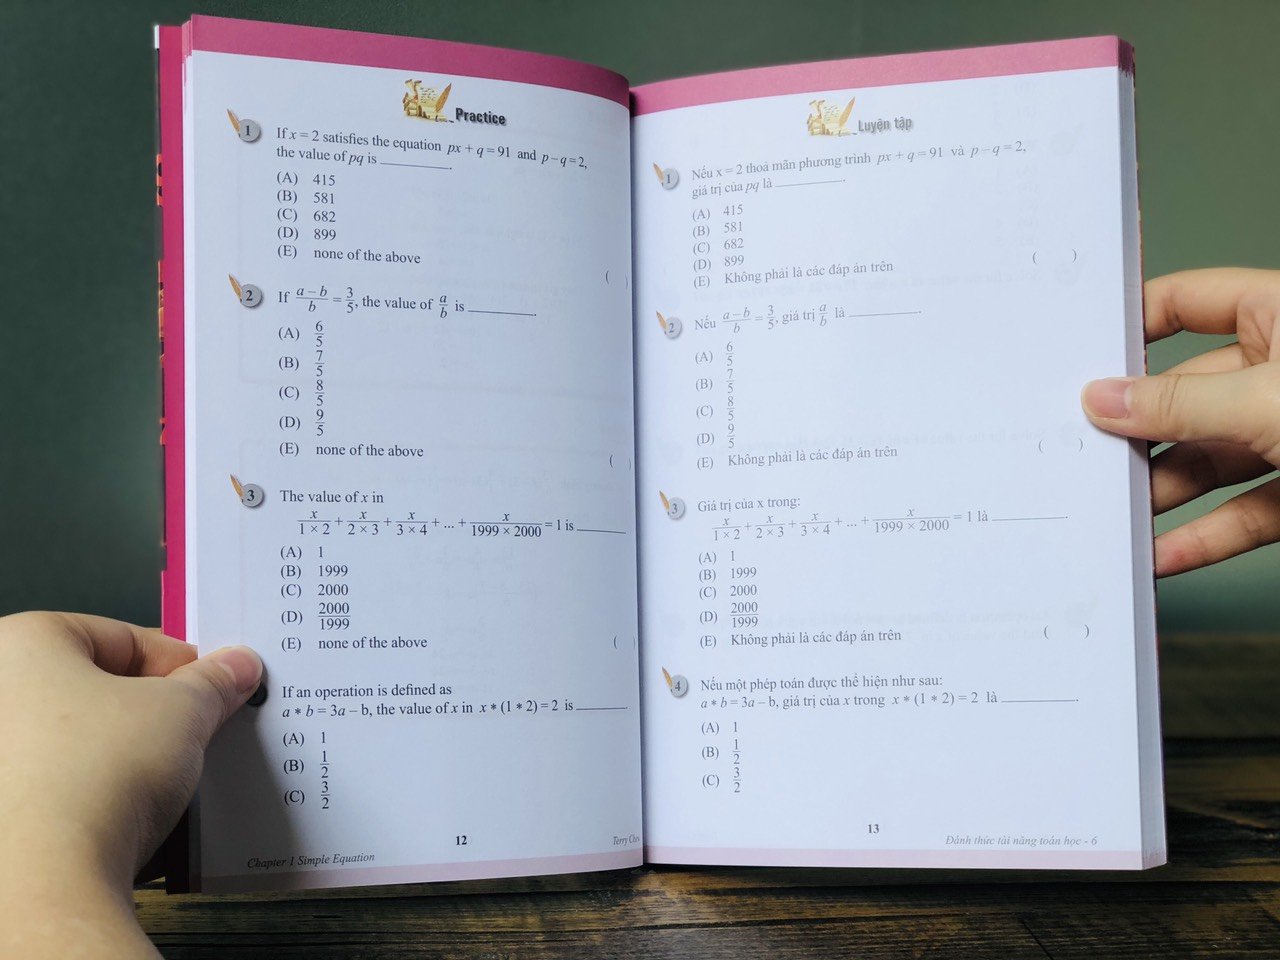 Practice
1 If x = 2 satisfies the equation px + q = 91 and p – q = 2,
the value of pq is ________.
(A) 415
(B) 581
(C) 682
(D) 899
(E) none of the above
( )
2 If (a – b)/b = 3/5, the value of a/b is ________.
(A) 6/5
(B) 7/5
(C) 8/5
(D) 9/5
(E) none of the above
( )
3 The value of x in
x/(1 × 2) + x/(2 × 3) + x/(3 × 4) + ... + x/(1999 × 2000) = 1 is ________
(A) 1
(B) 1999
(C) 2000
(D) 2000/1999
(E) none of the above
(
If an operation is defined as
a * b = 3a – b, the value of x in x * (1 * 2) = 2 is ________.
(A) 1
(B) 1/2
(C) 3/2
12
Chapter 1 Simple Equation
Terry
Luyện tập
1 Nếu x = 2 thoả mãn phương trình px + q = 91 và p – q = 2,
giá trị của pq là ________.
(A) 415
(B) 581
(C) 682
(D) 899
(E) Không phải là các đáp án trên
( )
2 Nếu (a – b)/b = 3/5, giá trị a/b là ________.
(A) 6/5
(B) 7/5
(C) 8/5
(D) 9/5
(E) Không phải là các đáp án trên
( )
3 Giá trị của x trong:
x/(1 × 2) + x/(2 × 3) + x/(3 × 4) + ... + x/(1999 × 2000) = 1 là ________.
(A) 1
(B) 1999
(C) 2000
(D) 2000/1999
(E) Không phải là các đáp án trên
( )
4 Nếu một phép toán được thể hiện như sau:
a * b = 3a – b, giá trị của x trong x * (1 * 2) = 2 là ________.
(A) 1
(B) 1/2
(C) 3/2
13
Đánh thức tài năng toán học - 6